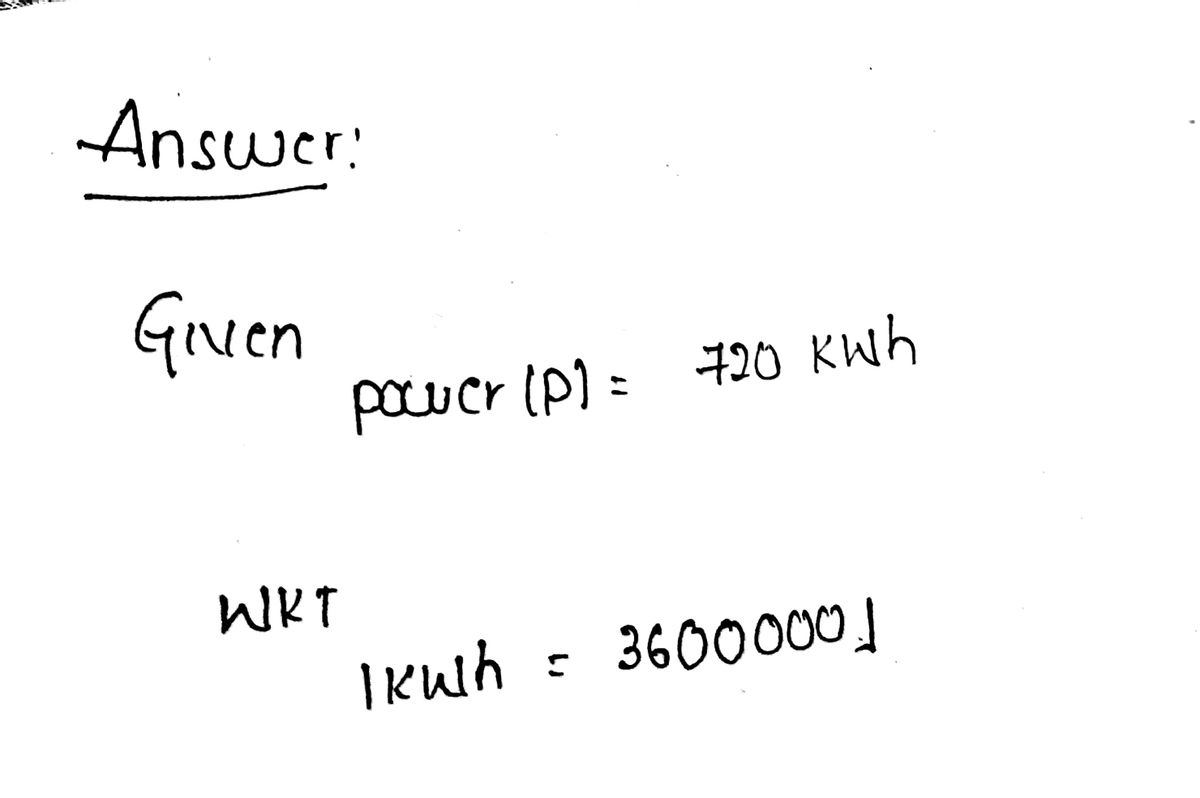 Answer:
Given
power (P) = 720 KWh
WKT
1KWh = 3600000J